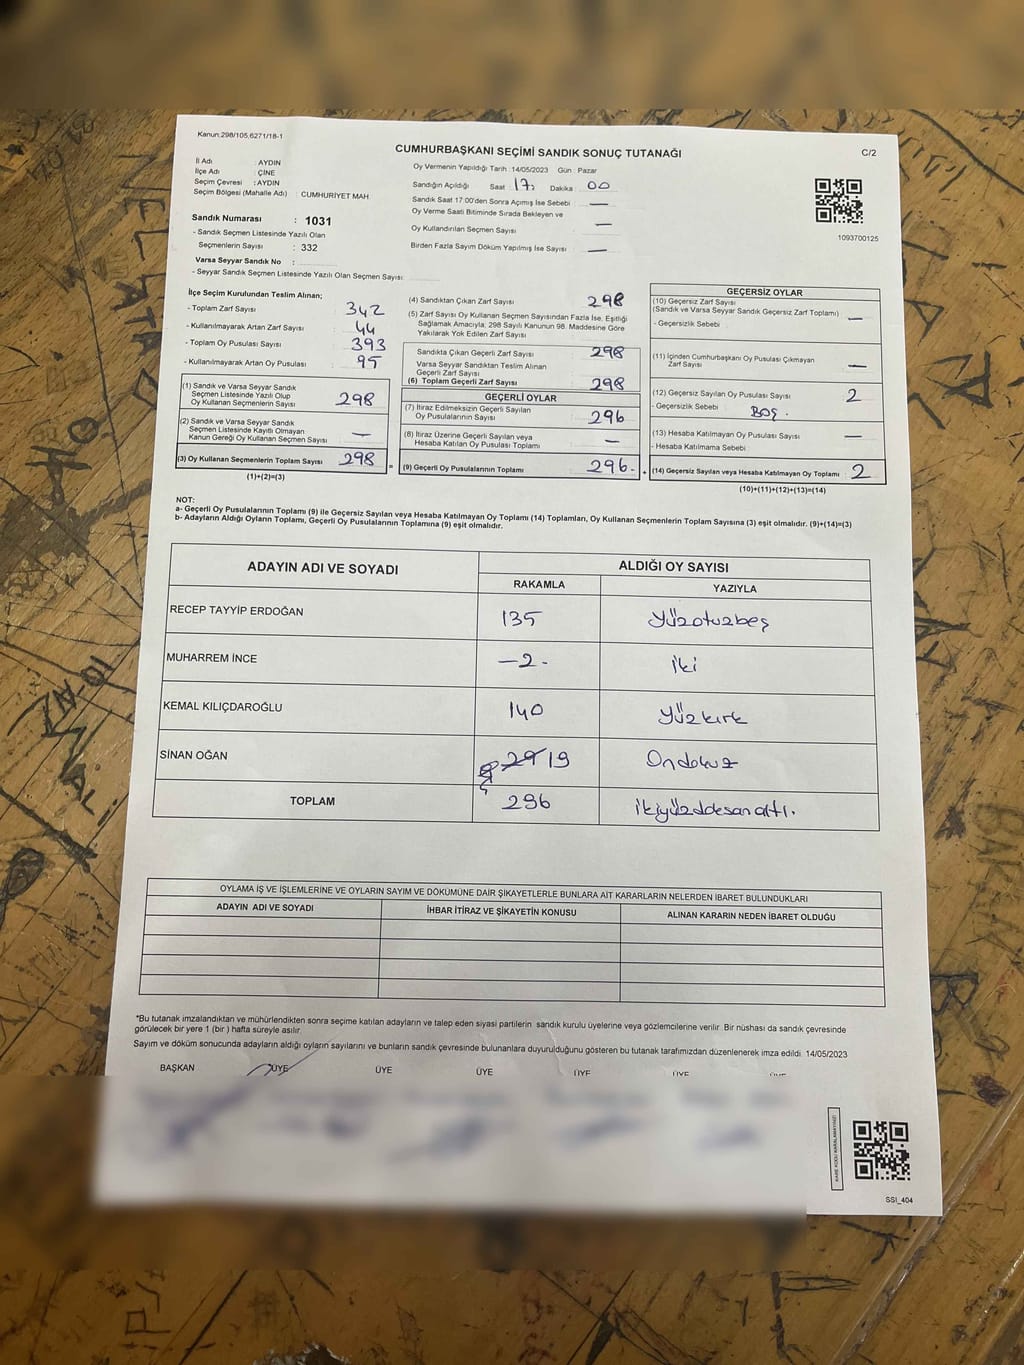 Kanun:298/105,6271/18-1
CUMHURBAŞKANI SEÇİMİ SANDIK SONUÇ TUTANAĞI
C/2
İl Adı : AYDIN
İlçe Adı : ÇİNE
Seçim Çevresi : AYDIN
Seçim Bölgesi (Mahalle Adı) : CUMHURİYET MAH.
Sandık Numarası : 1031
- Sandık Seçmen Listesinde Yazılı Olan
Seçmenlerin Sayısı : 332
Varsa Seyyar Sandık No :
- Seyyar Sandık Seçmen Listesinde Yazılı Olan Seçmen Sayısı:
Oy Vermenin Yapıldığı Tarih :14/05/2023 Gün : Pazar
Sandığın Açıldığı Saat 17: Dakika 00
Sandık Saat 17.00'den Sonra Açımış İse Sebebi : —
Oy Verme Saati Bitiminde Sırada Bekleyen ve
Oy Kullandırılan Seçmen Sayısı : —
Birden Fazla Sayım Döküm Yapılmış İse Sayısı : —
1093700125
İlçe Seçim Kurulundan Teslim Alınan;
- Toplam Zarf Sayısı : 342
- Kullanılmayarak Artan Zarf Sayısı : 44
- Toplam Oy Pusulası Sayısı : 393
- Kullanılmayarak Artan Oy Pusulası : 95
(1) Sandık ve Varsa Seyyar Sandık
Seçmen Listesinde Yazılı Olup
Oy Kullanan Seçmenlerin Sayısı : 298
(2) Sandık ve Varsa Seyyar Sandık
Seçmen Listesinde Kayıtlı Olmayan
Kanun Gereği Oy Kullanan Seçmen Sayısı : —
(3) Oy Kullanan Seçmenlerin Toplam Sayısı : 298
(1)+(2)=(3)
(4) Sandıktan Çıkan Zarf Sayısı : 298
(5) Zarf Sayısı Oy Kullanan Seçmen Sayısından Fazla İse, Eşitliği
Sağlamak Amacıyla, 298 Sayılı Kanunun 98. Maddesine Göre
Yakılarak Yok Edilen Zarf Sayısı :
Sandıkta Çıkan Geçerli Zarf Sayısı : 298
Varsa Seyyar Sandıktan Teslim Alınan
Geçerli Zarf Sayısı :
(6) Toplam Geçerli Zarf Sayısı : 298
GEÇERLİ OYLAR
(7) İtiraz Edilmeksizin Geçerli Sayılan
Oy Pusulalarının Sayısı : 296
(8) İtiraz Üzerine Geçerli Sayılan veya
Hesaba Katılan Oy Pusulası Toplamı : —
(9) Geçerli Oy Pusulalarının Toplamı : 296-
=
+
GEÇERSİZ OYLAR
(10) Geçersiz Zarf Sayısı
(Sandık ve Varsa Seyyar Sandık Geçersiz Zarf Toplamı) : —
- Geçersizlik Sebebi :
(11) İçinden Cumhurbaşkanı Oy Pusulası Çıkmayan
Zarf Sayısı : —
(12) Geçersiz Sayılan Oy Pusulası Sayısı : 2
- Geçersizlik Sebebi : BOŞ.
(13) Hesaba Katılmayan Oy Pusulası Sayısı : —
- Hesaba Katılmama Sebebi :
(14) Geçersiz Sayılan veya Hesaba Katılmayan Oy Toplamı : 2
(10)+(11)+(12)+(13)=(14)
NOT:
a- Geçerli Oy Pusulalarının Toplamı (9) ile Geçersiz Sayılan veya Hesaba Katılmayan Oy Toplamı (14) Toplamları, Oy Kullanan Seçmenlerin Toplam Sayısına (3) eşit olmalıdır. (9)+(14)=(3)
b- Adayların Aldığı Oyların Toplamı, Geçerli Oy Pusulalarının Toplamına (9) eşit olmalıdır.
ADAYIN ADI VE SOYADI
ALDIĞI OY SAYISI
RAKAMLA YAZIYLA
RECEP TAYYİP ERDOĞAN 135 yüzotuzbeş
MUHARREM İNCE —2- iki
KEMAL KILIÇDAROĞLU 140 yüzkırk
SİNAN OĞAN 29 19 Ondokuz
TOPLAM 296 ikiyüzddesanaltı.
OYLAMA İŞ VE İŞLEMLERİNE VE OYLARIN SAYIM VE DÖKÜMÜNE DAİR ŞİKAYETLERLE BUNLARA AİT KARARLARIN NELERDEN İBARET BULUNDUKLARI
ADAYIN ADI VE SOYADI İHBAR İTİRAZ VE ŞİKAYETİN KONUSU ALINAN KARARIN NEDEN İBARET OLDUĞU
*Bu tutanak imzalandıktan ve mühürlendikten sonra seçime katılan adayların ve talep eden siyasi partilerin sandık kurulu üyelerine veya gözlemcilerine verilir. Bir nüshası da sandık çevresinde
görülecek bir yere 1 (bir ) hafta süreyle asılır.
Sayım ve döküm sonucunda adayların aldığı oyların sayılarını ve bunların sandık çevresinde bulunanlara duyurulduğunu gösteren bu tutanak tarafımızdan düzenlenerek imza edildi. 14/05/2023
BAŞKAN ÜYE ÜYE ÜYE ÜYE ÜYE ÜYE
KARE KODU KARALAMAYINIZ!
SSI_404